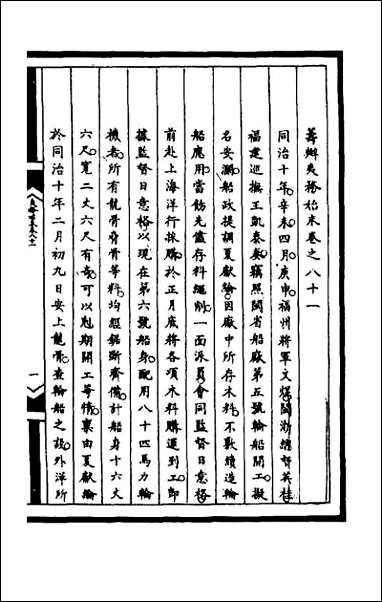 籌辦夷務始末卷之八十一
同治十年辛未四月庚申福州將軍文煜閩浙總督英桂
福建巡撫王凱泰奏竊照閩省船廠第五號輪船開工擬
名安瀾船政提調夏獻綸因廠中所存木料不敷續造輪
船應用當飭先儘存料繩削一面派員會同監督日意格
前赴上海洋行採購於正月底將各項木料購運到工即
據監督日意格以現在第六號船身配用八十匹馬力輪
機者所有龍骨脅骨等料均經鋸斷齊備計船身十六丈
六尺寬二丈六尺有奇可以剋期開工等情稟由夏獻綸
於同治十年二月初九日安上龍骨查輪船之設外洋所
一